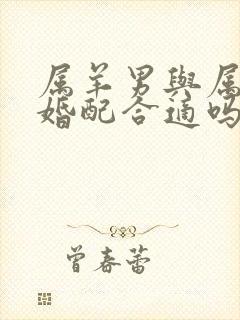 属羊男與属
婚配合適吗
曾春蕾